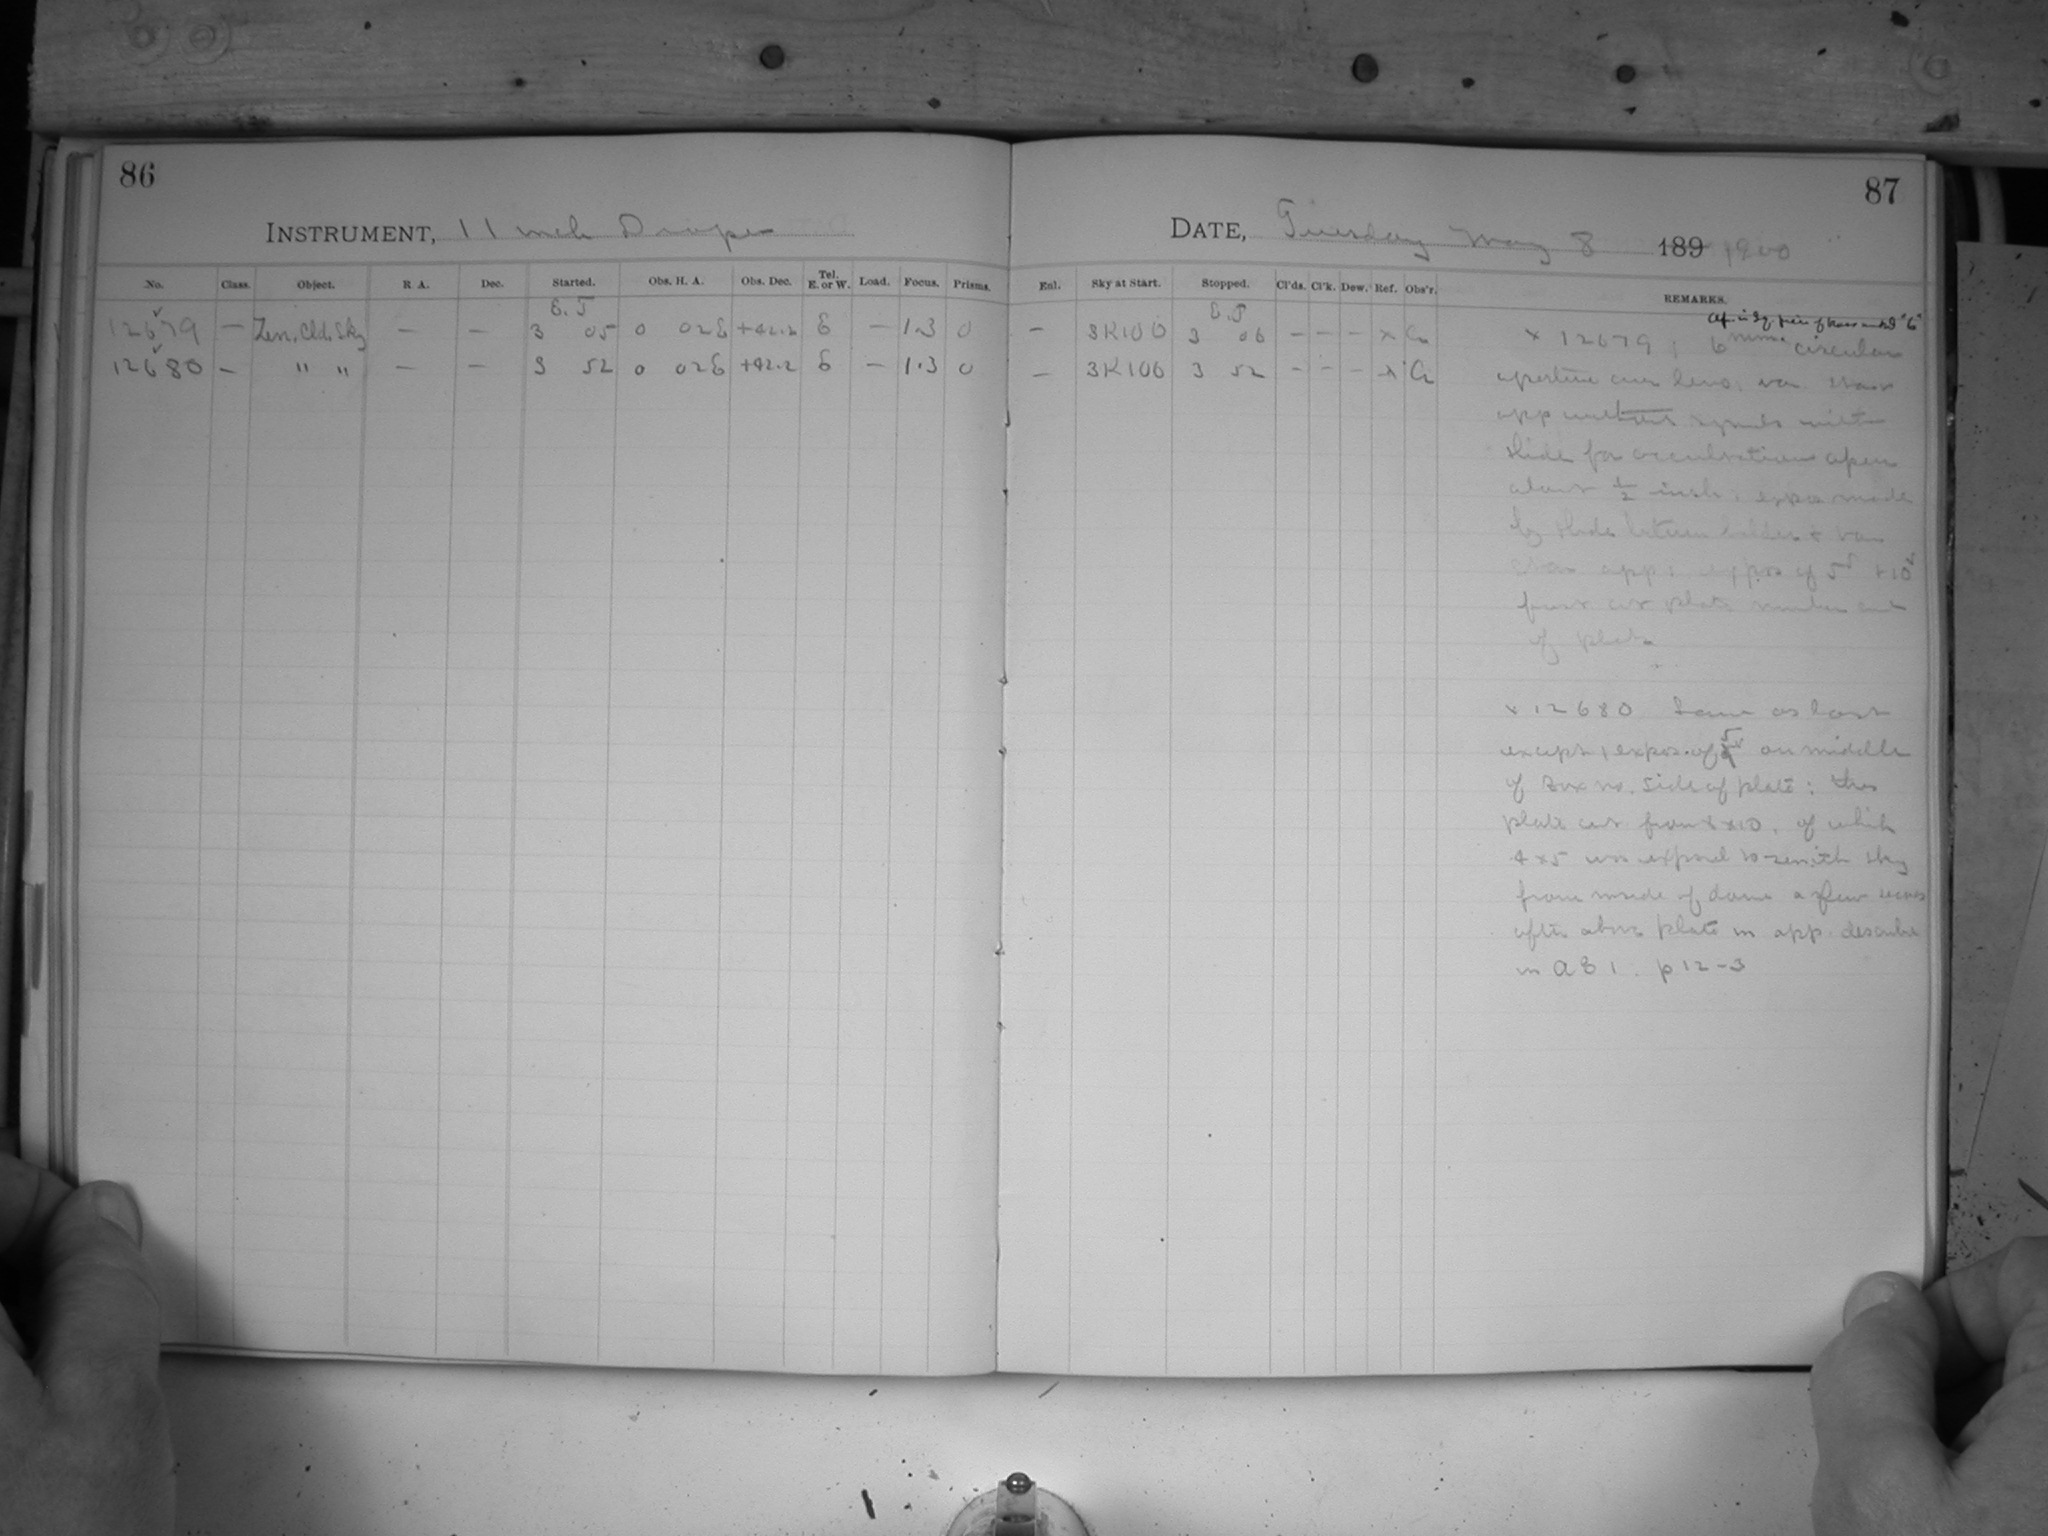 86
87
INSTRUMENT, 11 inch Draper
DATE, Tuesday May 8 189 1900
No. Class. Object. R. A. Dec. Started. Obs. H. A. Obs. Dec. Tel. E. or W. Load. Focus. Prisms. Enl. Sky at Start. Stopped. Cl'ds. Cl'k. Dew. Ref. Obs'r. REMARKS.
E. T E. T
12679 — Zen. Cld. Sky — — 3 05 0 02E +42.2 E — 1.3 0 — 3K100 3 06 — — — x
12680 — " " — — 3 52 0 02E +42.2 E — 1.3 0 — 3K100 3 52 — — — x
x 12679, 6 circular
aperture over lens, var. star
app
slide for occultations open
about 1/2 inch, expos made
by slide between holder & var
star app: expos of 5s + 10s
from cut plate number cut
of plate
x 12680 Same as last
except, expos. of 5s on middle
of Box no. side of plate: this
plate cut from 8x10, of which
4x5 was exposed to zenith sky
from inside of dome a few secs
after above plate in app. describe
in AE 1. p 12-3